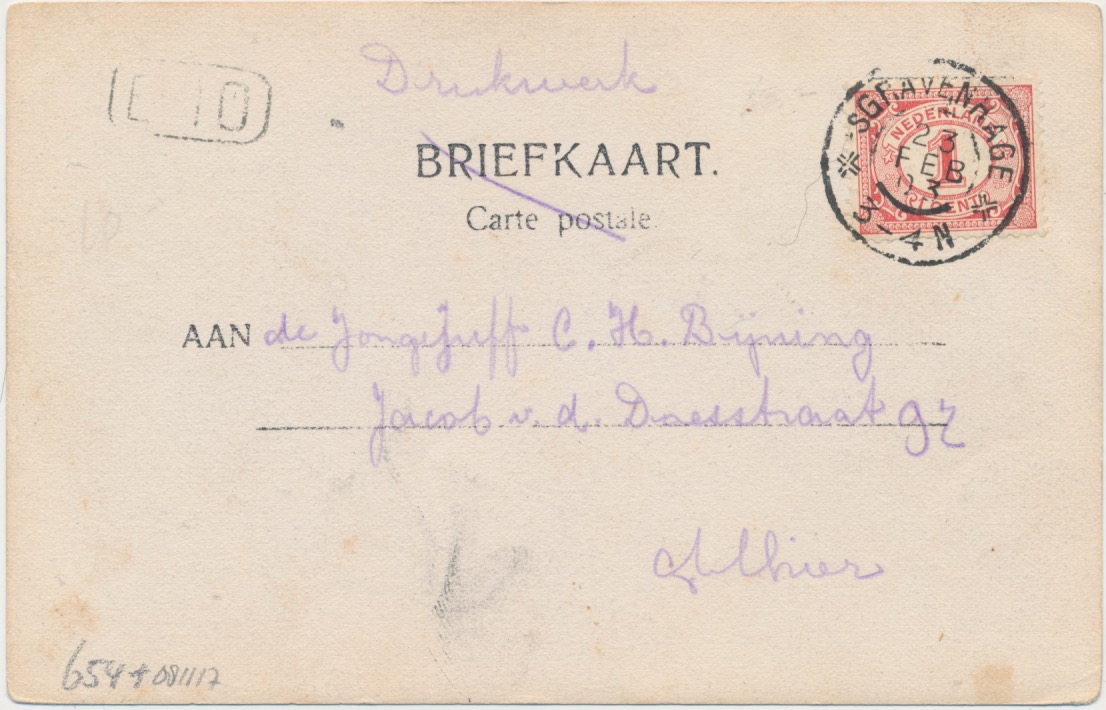 Drukwerk
E 10
BRIEFKAART.
Carte postale
'SGRAVENHAGE
23
FEB
03
3-4N
NEDERLAND
1
CENT
AAN de Jongejuff C. H. Bijning
Jacob v. d. Doesstraat 97
Alhier
654 + 081117